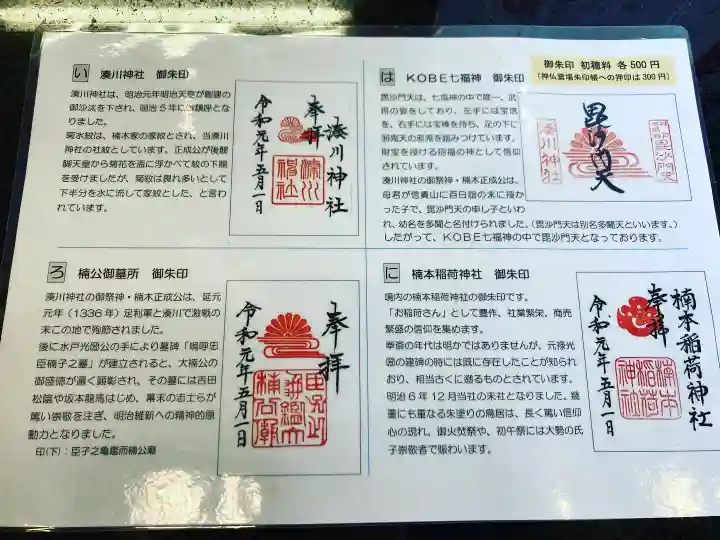 い 湊川神社 御朱印
湊川神社は、明治元年明治天皇が創建の
御沙汰を下され、明治5年に御鎮座とな
りました。
菊水紋は、楠木家の家紋とされ、当湊川神
社の社紋としています。正成公が後醍
醐天皇から菊花を酒に浮かべて紋の下賜
を受けましたが、菊紋は畏れ多いとして
下半分を水に流して家紋とした、と言わ
れています。
奉拝
湊川神社
令和元年五月一日
湊川
神社
ろ 楠公御墓所 御朱印
湊川神社の御祭神・楠木正成公は、延元
元年（1336年）足利軍と湊川で激戦の
末この地で殉節されました。
後に水戸光圀公の手により墓碑「嗚呼忠
臣楠子之墓」が建立されると、大楠公の
御盛徳が遍く顕彰され、その墓には吉田
松陰や坂本龍馬はじめ、幕末の志士らが
篤い崇敬を注ぎ、明治維新への精神的原
動力となりました。
印(下)：臣子之亀鑑而楠公廟
奉拝
令和元年五月一日
は KOBE七福神 御朱印
御朱印 初穂料 各500円
（神仏霊場朱印帳への押印は300円）
毘沙門天は、七福神の中で唯一、武
将の姿をしており、左手には宝塔
を、右手には宝棒を持ち、足の下に
邪鬼天の邪鬼を踏みつけています。
財宝を授ける招福の神として信仰
されています。
湊川神社の御祭神・楠木正成公は、
母君が信貴山に百日詣の末に授か
った子で、毘沙門天の申し子といわ
れ、幼名を多聞と名付けられました。（毘沙門天は別名多聞天といいます。）
したがって、KOBE七福神の中で毘沙門天となっております。
毘沙門天
湊川神社
に 楠本稲荷神社 御朱印
境内の楠本稲荷神社の御朱印です。
「お稲荷さん」として豊作、社業繁栄、商売
繁盛の信仰を集めます。
奉斎の年代は明らかではありませんが、元禄光
圀の建碑の時には既に存在したことが知られ
おり、相当古くに遡るものとされています。
明治6年12月当社の末社となりました。幾
重にも重なる朱塗りの鳥居は、長く篤い信仰
心の現れ。御火焚祭や、初午祭には大勢の氏
子崇敬者で賑わいます。
奉拝
楠本稲荷神社
令和元年五月一日
楠本
稲荷
神社